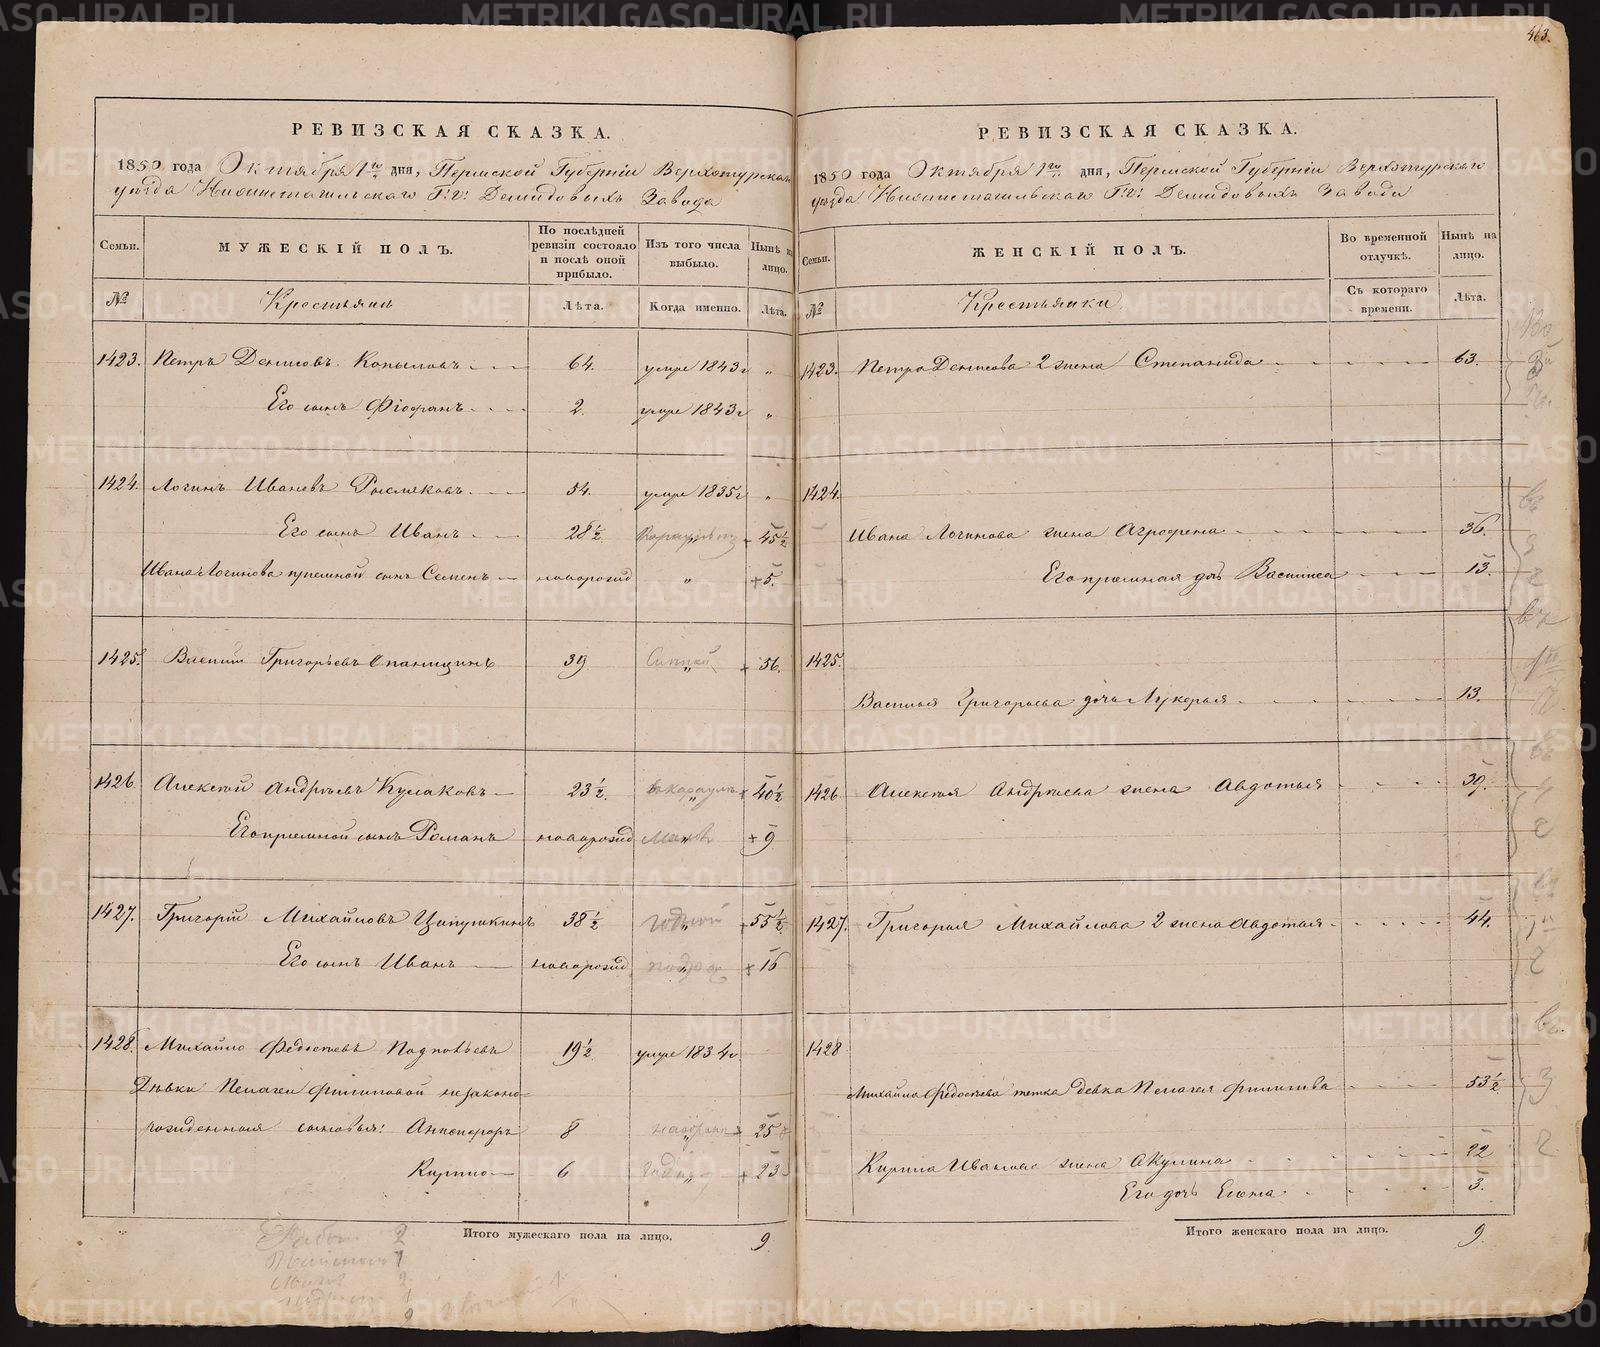 463.
РЕВИЗСКАЯ СКАЗКА.
1850 года Октября 1го дня, Пермской Губернiи Верхотурскаго
уѣзда Нижнетагильскаго Г.г. Демидовыхъ Завода
Семьи. МУЖЕСКIЙ ПОЛЪ. По послѣдней ревизiи состояло и послѣ оной прибыло. Изъ того числа выбыло. Нынѣ на лицо.
№ Крестьянъ Лѣта. Когда именно. Лѣта.
1423. Петръ Денисовъ Копыловъ 64. умре 1843 г „
Его сынъ Фiофанъ 2. умре 1843 г „
1424. Логинъ Ивановъ 54. умре 1835 г „
Его сынъ Иванъ 28½ „ 45½
Ивана Логинова прiемной сынъ Семенъ новорожд „ + 5.
1425. Василiй Григорьевъ 39 „ 56.
1426. Алексѣй Андрѣевъ Кулаковъ 23½. вкараулѣ „ 40½
Его прiемной сынъ Романъ новорожд „ + 9
1427. Григорiй Михайловъ Ципушкинъ 38½ „ 55½.
Его сынъ Иванъ новорожд „ 16
1428. Михайло Федосѣевъ 19½ умре 1834 г
Дѣвки Пелагеи Филиповой незаконо-
рожденныя сыновья: 8 „ 25
Кирило 6 „ 23
Итого мужескаго пола на лицо. 9
РЕВИЗСКАЯ СКАЗКА.
1850 года Октября 1го дня, Пермской Губернiи Верхотурскаго
уѣзда Нижнетагильскаго Г.г. Демидовыхъ Завода
Семьи. ЖЕНСКIЙ ПОЛЪ. Во временной отлучкѣ. Нынѣ на лицо.
№ Крестьянки Съ котораго времени. Лѣта.
1423. Петра Денисова 2 жена Степанида 63.
1424.
Ивана Логинова жена Агрофена 36.
Его прiемная дчь Василиса 13.
1425.
Василья Григорьева дочь Лукерья 13.
1426 Алексѣя Андрѣева жена Авдотья 39.
1427. Григорья Михайлова 2 жена Авдотья 44.
1428
Михайла Федосѣева тетка девка Пелагея Филипова 53½
Кирила Иванова жена Акулина 22
Его дочь 3.
Итого женскаго пола на лицо. 9.
METRIKI.GASO-URAL.RU